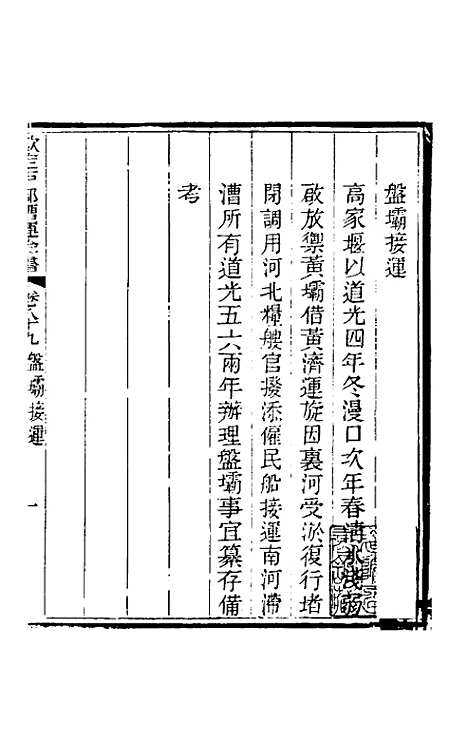 盤壩接運
高家堰以道光四年冬漫口次年春清水淺弱
啟放禦黃壩借黃濟運旋因裏河受淤復行堵
閉調用河北糧艘官撥添僱民船接運南河滯
漕所有道光五六兩年辦理盤壩事宜纂存備
考
欽定戶部漕運全書 卷八十九 盤壩接運 一